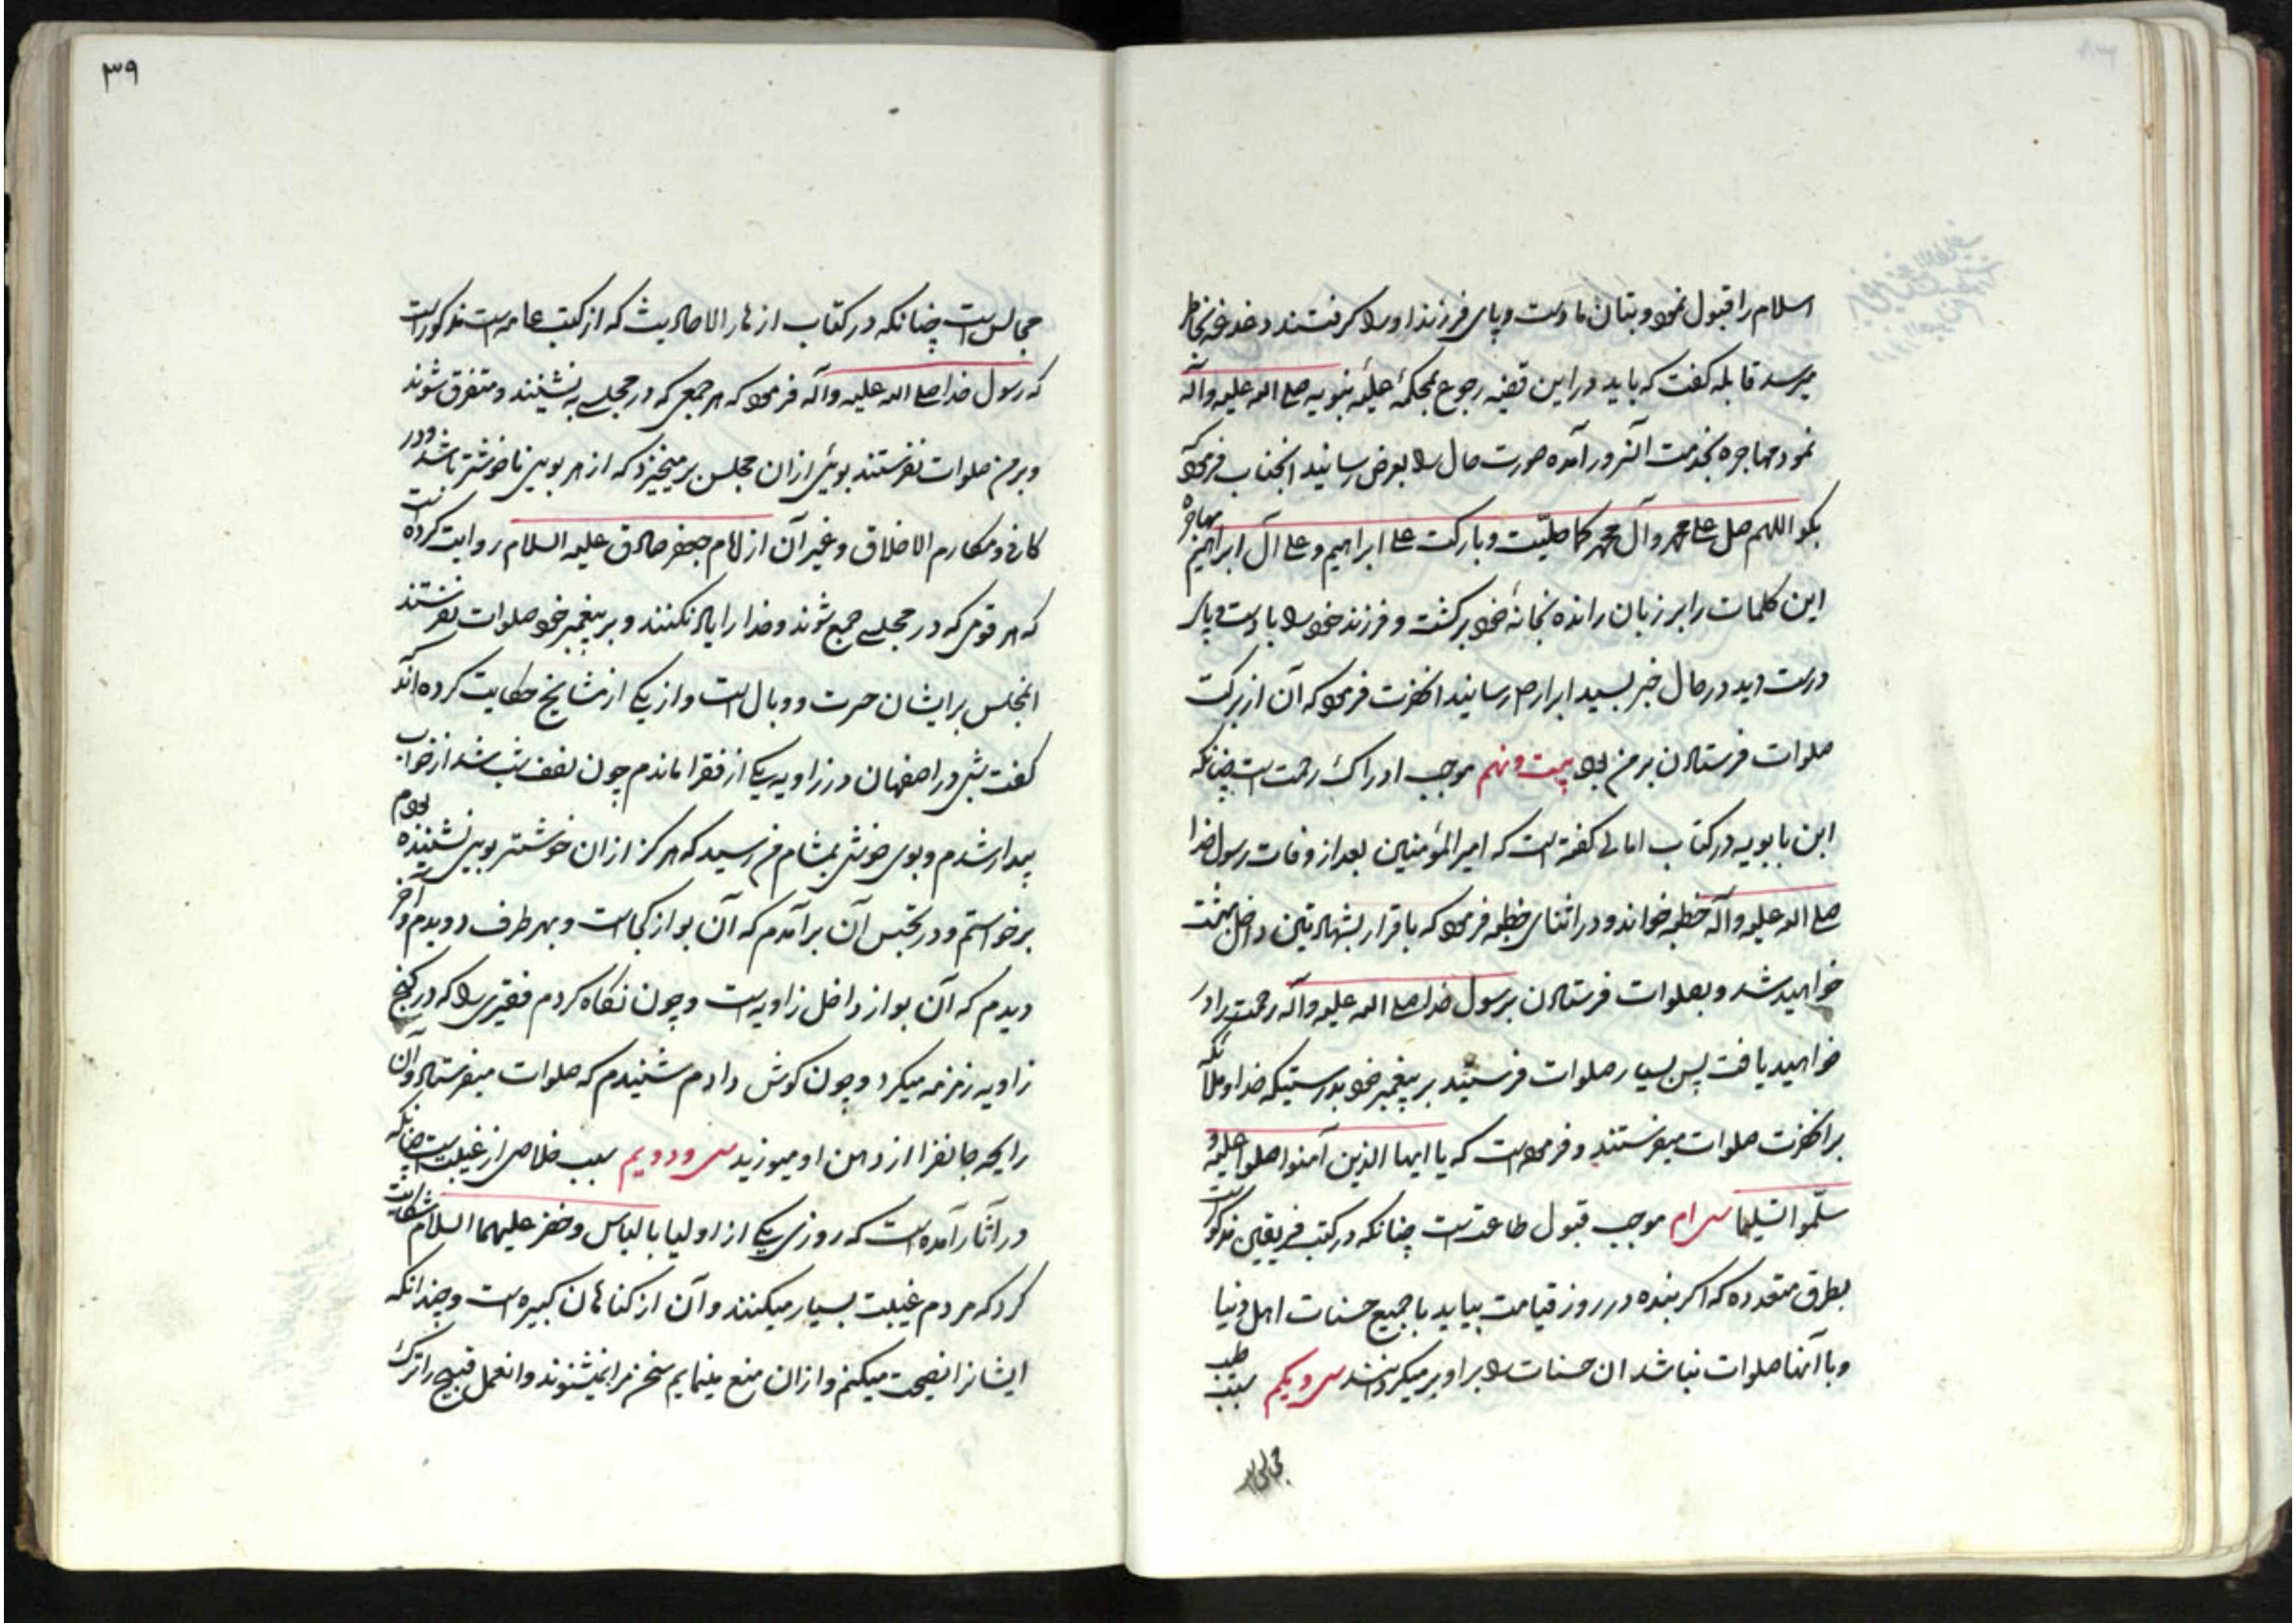 اسلام را قبول نمود و بتان ما دست و پای فرزند او را گرفتند دغدغه بخاطر
میرسد قابله گفت که باید در این قضیه رجوع بمحکمهٔ علیهٔ نبویه صلی الله علیه وآله
نمود مهاجره بخدمت آنسرور آمده صورت حال را بعرض رسانید انجناب فرمود که
بگو اللهم صل علی محمد وآل محمد کما صلیّت وبارکت علی ابراهیم وعلی آل ابراهیم مهاجره
این کلمات را بر زبان رانده بخانهٔ خود برگشت و فرزند خود را با دست و پای
درست دید در حال خبر بسید ابرار صلی رسانید انحضرت فرمود که آن از برکت
صلوات فرستادن بر من بود بیست و نهم موجب ادراک رحمت است چنانکه
ابن بابویه در کتاب امالی گفته است که امیر المؤمنین بعد از وفات رسول خدا
صلی الله علیه وآله خطبه خواند و در اثنای خطبه فرمود که باقرار بشهادتین داخل بهشت
خواهید شد و بصلوات فرستادن بر رسول خدا صلی الله علیه وآله رحمت را در
خواهید یافت پس بسیار صلوات فرستید بر پیغمبر خود بدرستیکه خدا و ملائکه
بر انحضرت صلوات میفرستند و فرموده است که یا ایها الذین آمنوا صلوا علیه و
سلّموا تسلیما سی ام موجب قبول طاعتست چنانکه در کتب فریقین مذکور است
بطرق متعدده که اگر بنده در روز قیامت بیاید با جمیع حسنات اهل دنیا
و با آنها صلوات نباشد ان حسنات را بر او بر میگردانند سی و یکم سبب طیب
مجالس است
۳۹
مجالس است چنانکه در کتاب ازهار الاحادیث که از کتب عامه است مذکور است
که رسول خدا صلی الله علیه وآله فرمود که هر جمعی که در مجلسی به نشینند و متفرق شوند
و بر من صلوات نفرستند بوئی ازان مجلس برمیخیزد که از هر بویی ناخوشتر باشد و در
کافی و مکارم الاخلاق و غیر آن از امام جعفر صادق علیه السلام روایت کرده است
که هر قومی که در مجلسی جمع شوند و خدا را یاد نکنند و بر پیغمبر خود صلوات نفرستند
انمجلس بر ایشان حسرت و وبال است و از یکی از مشایخ حکایت کرده اند که
گفت شبی در اصفهان در زاویه یکی از فقرا ماندم چون نصف شب شد از خواب
بیدار شدم و بوی خوشی بمشام من رسید که هرگز ازان خوشتر بویی نشنیده بودم
برخواستم و در تجسس آن برآمدم که آن بو از کجاست و بهر طرف دویدم و آخر
دیدم که آن بو از داخل زاویه است و چون نگاه کردم فقیری را که در کنج
زاویه زمزمه میکرد و چون گوش دادم شنیدم که صلوات میفرستاد و آن
رایحه جانفزا از دهن او میوزید سی و دویم سبب خلاصی از غیبت است چنانکه
در آثار آمده است که روزی یکی از اولیا با الیاس و خضر علیهما السلام شکایت
کرد که مردم غیبت بسیار میکنند و آن از گناهان کبیره است و چندانکه
ایشانرا نصیحت میکنم و ازان منع مینمایم سخن مرا نمیشنوند و انعمل قبیح را ترک